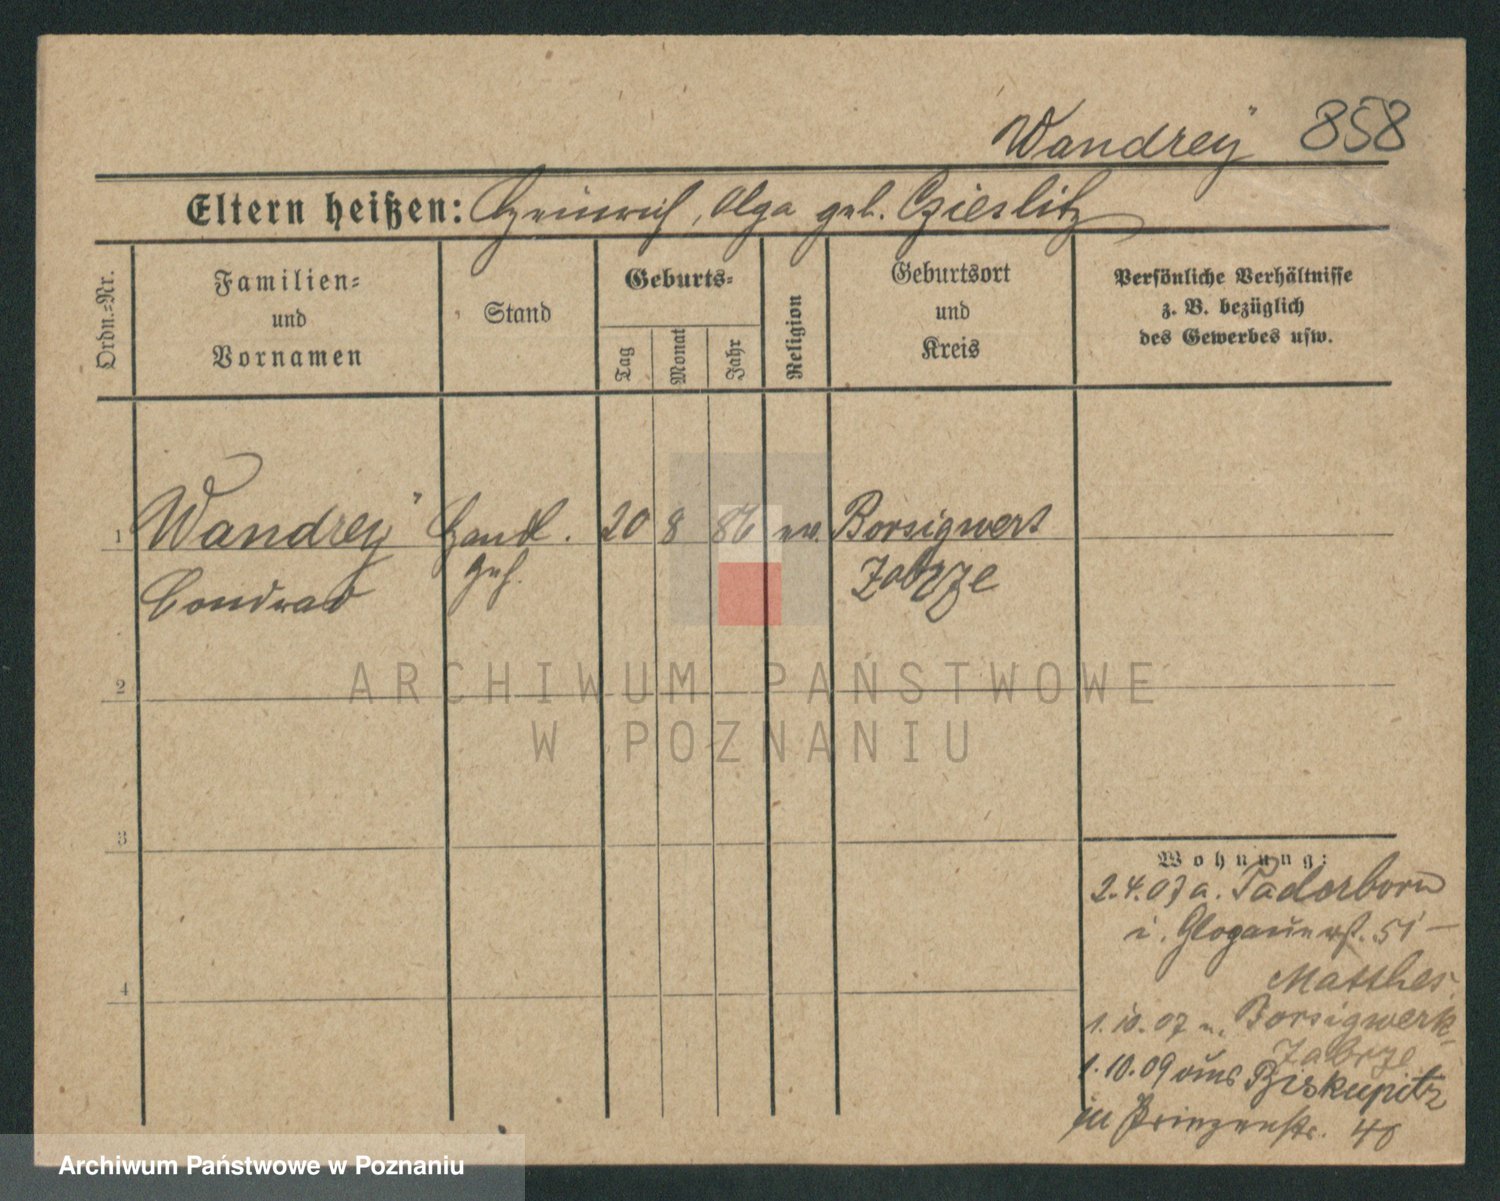 Wandrey 858
Eltern heißen: Heinrich, Olga geb. Czieslitz
Ordn.=Nr.
Familien=
und
Vornamen
Stand
Geburts=
Tag
Monat
Jahr
Religion
Geburtsort
und
Kreis
Persönliche Verhältnisse
z. B. bezüglich
des Gewerbes usw.
1 Wandrey Handl. 20 8 86 ev. Borsigwerk
Conrad Geh. Zabrze
2
3
4
ARCHIWUM PAŃSTWOWE
W POZNANIU
Wohnung:
2.4.07 a. Paderborn
i. Glogauerstr. 51
Matthes
1.10.07 n. Borsigwerk
Zabrze
1.10.09 aus Biskupitz
in Prinzenstr. 48
Archiwum Państwowe w Poznaniu